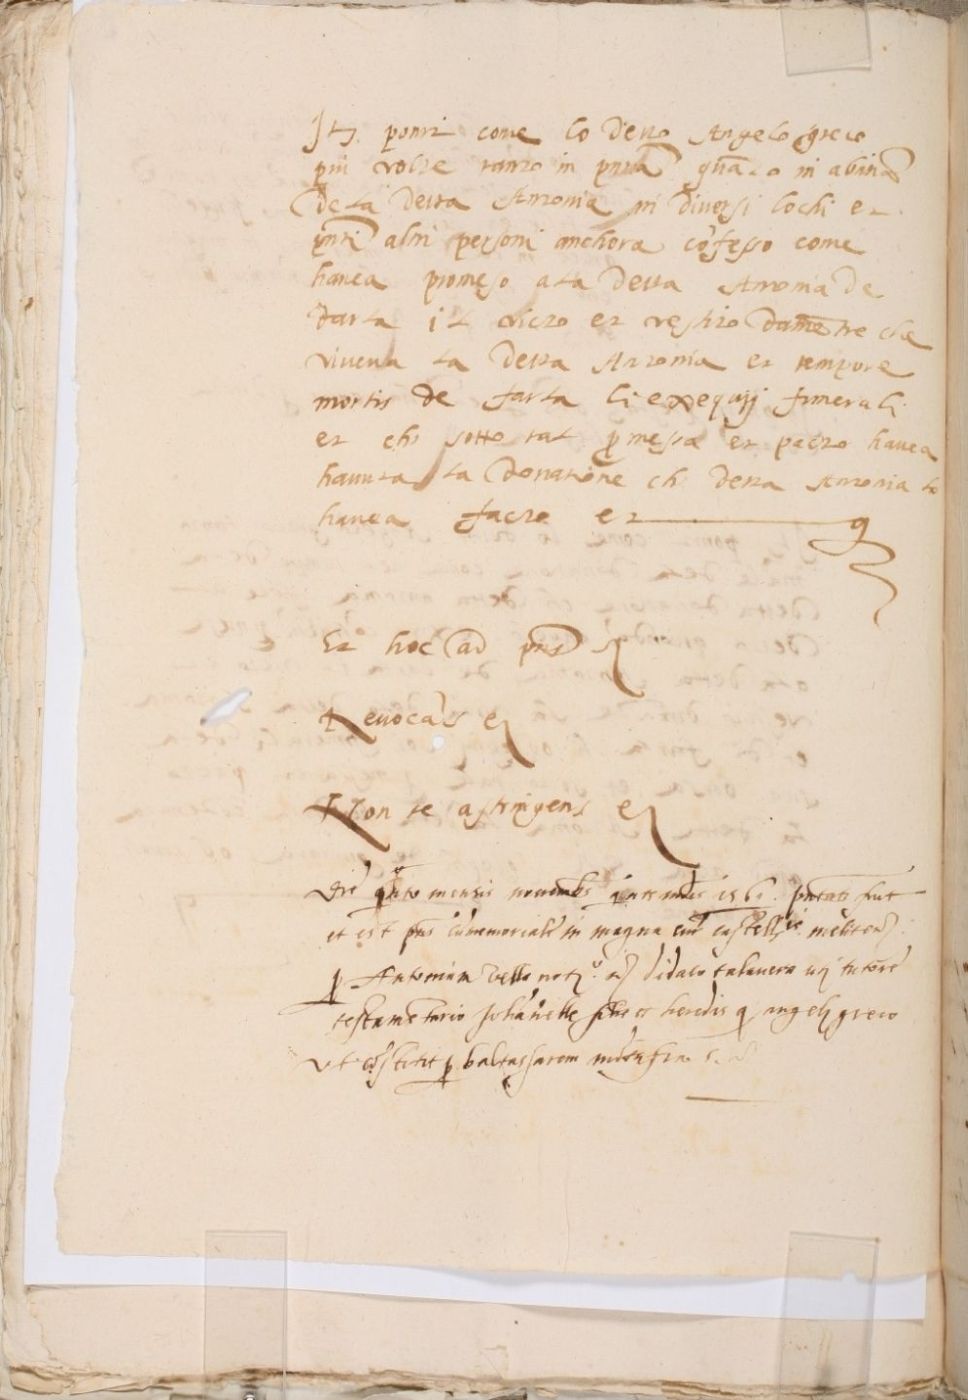 It(em) pon(er)i come lo detto Angelo greco
piu volte tanto in pn(tia) qua(n)to in absn(tia)
de la detta Antonia in diversi lochi et
pnti altri personi anchora co(n)fesso come
havea promeso a la detta Antonia de
darla il victo et vestito dura(n)te che
vivera la detta Antonia et tempore
mortis de farla li exequij funerali
et ch(e) sotto tal p(ro)messa et pacto havea
havuta la donatione ch(e) detta Antonia lo
havea facto et
Et hoc ad pns
Revoca(n)s et
Non se astringens et
Die qu(in)to mensis novembris 1561 pntat(um) fuit
et est pns memoriale in magna cur(ia) castell(an)ie meliten(si)
p(er) Antonium vella not(ariu)m didaco talavera uti tutore
testamentario Joha(n)nelle filie et heredis q(uondam) angeli greco
ut co(n)stitit p(er) baltassarem